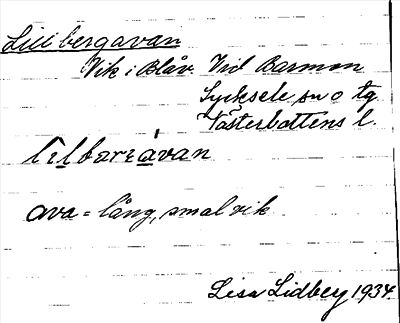 Lillbergavan
Vik i Blåv. Vid Barman
Lycksele sn o tg
Västerbottens l.
ava = lång, smal vik
Lisa Lidberg 1934.